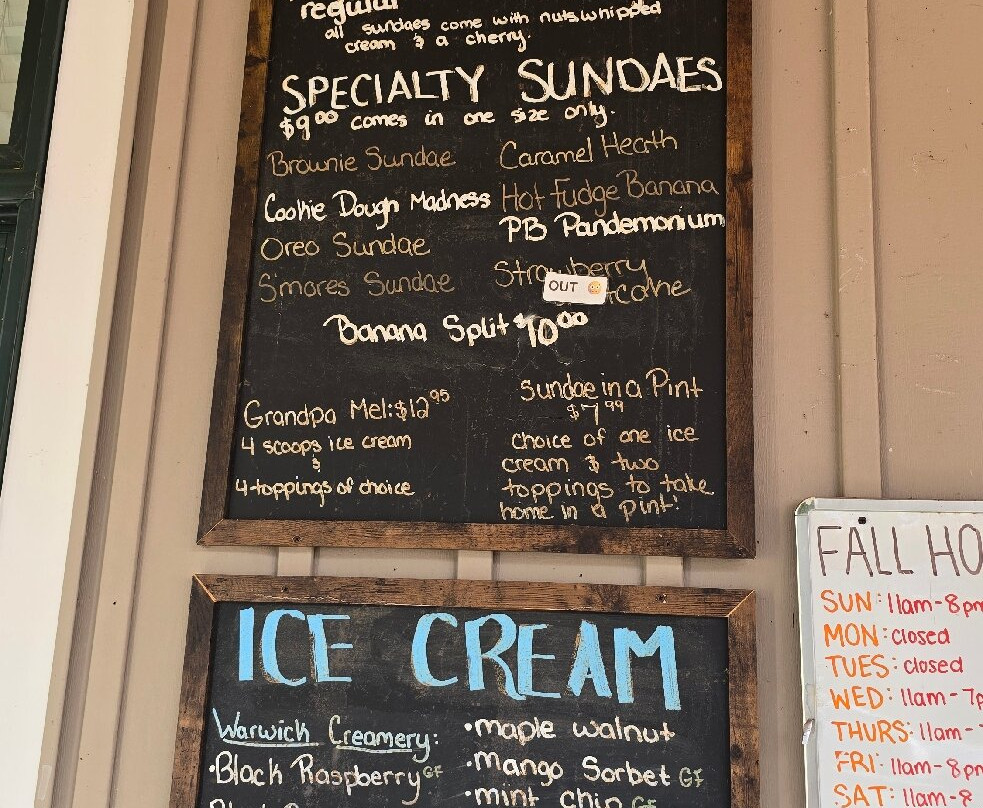 regular
all sundaes come with nuts whipped
cream & a cherry.
SPECIALTY SUNDAES
$9.00 comes in one size only.
Brownie Sundae
Cookie Dough Madness
Oreo Sundae
S'mores Sundae
Caramel Hearth
Hot Fudge Banana
PB Pandemonium
Strawberry
OUT
Banana Split $10.00
Grandpa Mel: $12.95
4 scoops ice cream
&
4 toppings of choice
Sundae in a Pint
$7.99
choice of one ice
cream & two
toppings to take
home in a pint!
ICE CREAM
Warwick Creamery:
•Black Raspberry GF
•maple walnut
•Mango Sorbet GF
•mint chip GF
FALL HO
SUN: 11am-8pm
MON: closed
TUES: closed
WED: 11am-7p
THURS: 11am-
FRI: 11am-8pm
SAT: 11am-8